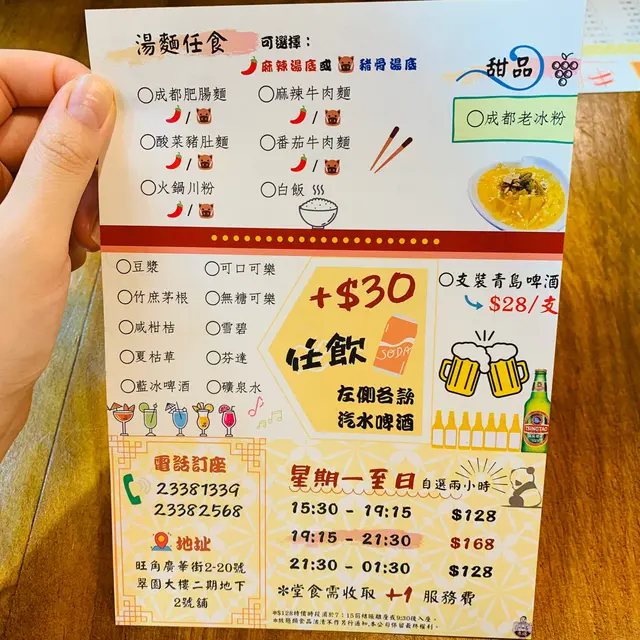 湯麵任食 可選擇：
麻辣湯底或 豬骨湯底
成都肥腸麵
麻辣牛肉麵
/
/
酸菜豬肚麵
番茄牛肉麵
/
/
火鍋川粉
白飯
/
甜品
成都老冰粉
豆漿
可口可樂
竹庶茅根
無糖可樂
咸柑桔
雪碧
夏枯草
芬達
藍冰啤酒
礦泉水
+$30
任飲
SODA
左側各款
汽水啤酒
支裝青島啤酒
$28/支
TSINGTAO
電話訂座
23381339
23382568
地址
旺角廣華街2-20號
翠園大樓二期地下
2號舖
星期一至日 自選兩小時
15:30 - 19:15 $128
19:15 - 21:30 $168
21:30 - 01:30 $128
*堂食需收取 +1 服務費